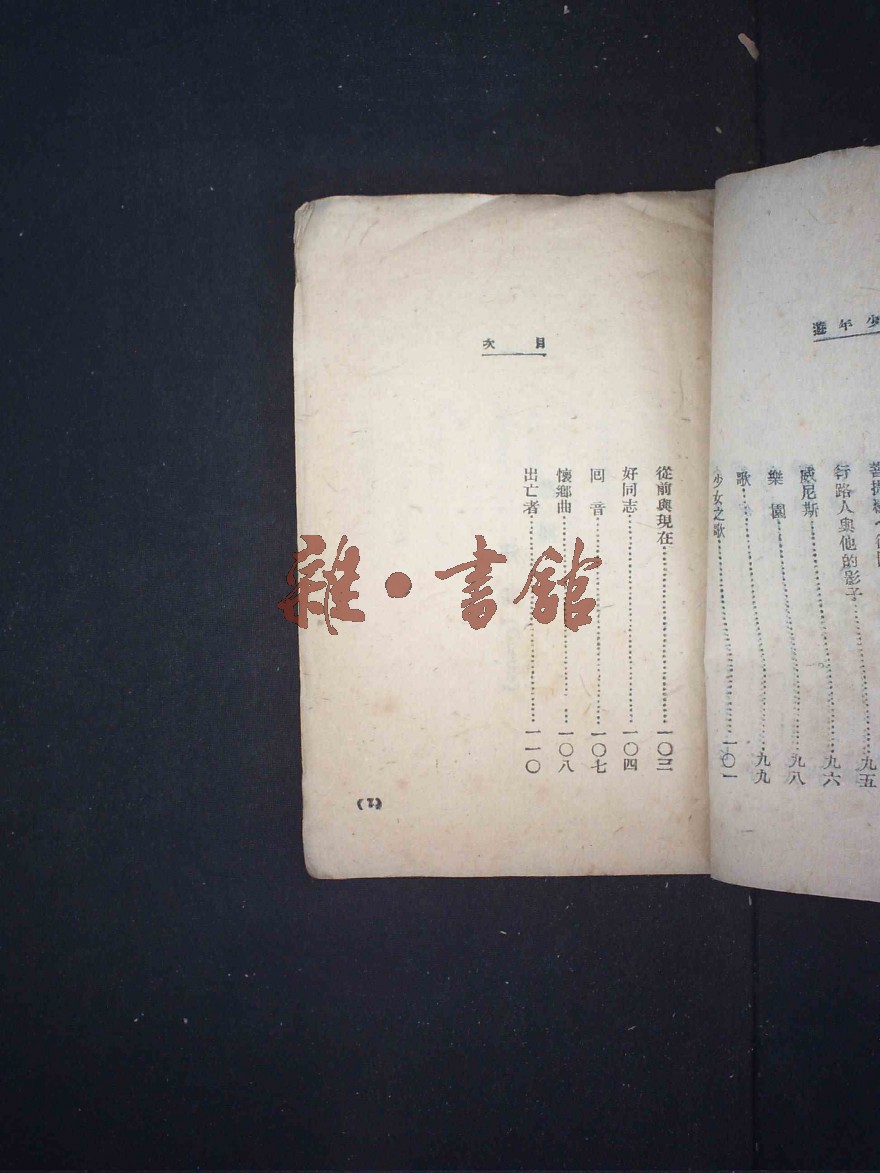 遊年少
行路人與他的影子…………九六
威尼斯…………九八
樂園…………九九
歌…………
少女之歌…………一〇一
九五
次目
從前與現在…………一〇三
好同志…………一〇四
囘音…………一〇七
懷鄉曲…………一〇八
出亡者…………一一〇
雜·書館